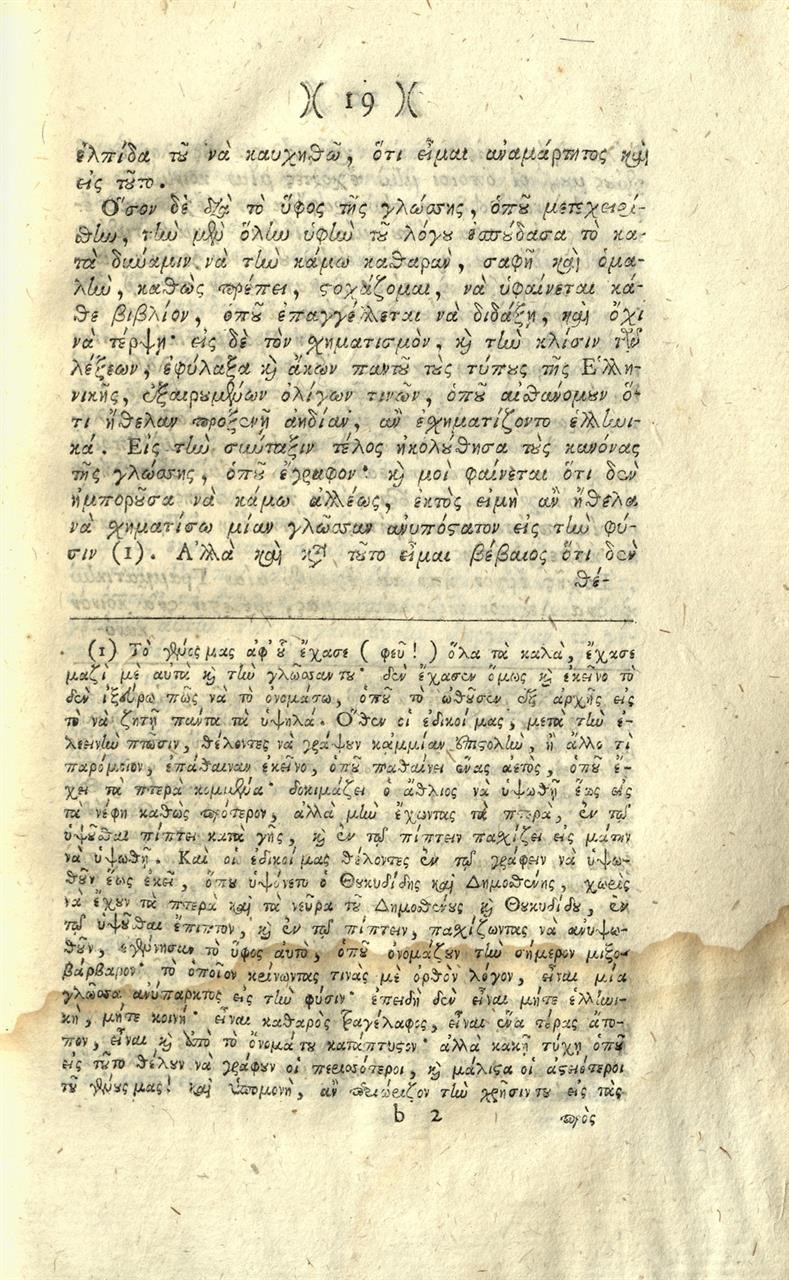 )( 19 )(
ἐλπίδα τοῦ νὰ καυχηθῶ, ὅτι εἶμαι ἀναμάρτητος καὶ
εἰς τοῦτο.
Ὅσον δὲ διὰ τὸ ὕφος τῆς γλώσσης, ὁποῦ μετεχειρί-
θην, τὴν μὲν ὅλην ὑφὴν τοῦ λόγου ἐσπούδασα τὸ κα-
τὰ δύναμιν νὰ τὴν κάμω καθαρὰν, σαφῆ καὶ ὁμα-
λὴν, καθὼς πρέπει, στοχάζομαι, νὰ ὑφαίνεται κά-
θε βιβλίον, ὁποῦ ἐπαγγέλλεται νὰ διδάξῃ, καὶ ὄχι
νὰ τέρψῃ· εἰς δὲ τὸν σχηματισμὸν, καὶ τὴν κλίσιν τῶν
λέξεων, ἐφύλαξα καὶ ἄκων παντοῦ τοὺς τύπους τῆς Ἑλλη-
νικῆς, ἐξαιρουμένων ὀλίγων τινῶν, ὁποῦ αἰσθάνομουν ὅ-
τι ἤθελαν προξενῇ ἀηδίαν, ἂν ἐσχηματίζοντο ἑλληνι-
κά. Εἰς τὴν σύνταξιν τέλος ἠκολούθησα τοὺς κανόνας
τῆς γλώσσης, ὁποῦ ἔγραφον· καὶ μοὶ φαίνεται ὅτι δὲν
ἠμποροῦσα νὰ κάμω ἀλλέως, ἐκτὸς εἰμὴ ἂν ἤθελα
νὰ σχηματίσω μίαν γλῶσσαν ἀνυπόστατον εἰς τὴν φύ-
σιν (1). Ἀλλὰ καὶ κατὰ τοῦτο εἶμαι βέβαιος ὅτι δὲν
θέ-
(1) Τὸ γένος μας ἀφ' οὗ ἔχασε ( φεῦ! ) ὅλα τὰ καλὰ, ἔχασε
μαζὶ μὲ αὐτὰ καὶ τὴν γλῶσσαν του· δὲν ἔχασεν ὅμως καὶ ἐκεῖνο τὸ
δὲν ἰξεύρω πῶς νὰ τὸ ὀνομάσω, ὁποῦ τὸ ὠθοῦσεν ἐξ ἀρχῆς εἰς
τὸ νὰ ζητῇ πάντα τὰ ὑψηλά. Ὅθεν οἱ ἐδικοί μας, μετὰ τὴν ἐ-
λεεινὴν πτῶσιν, θέλοντες νὰ γράψουν καμμίαν ἐπιστολὴν, ἢ ἄλλο τὶ
παρόμοιον, ἐπάθαιναν ἐκεῖνο, ὁποῦ παθαίνει ἕνας ἀετὸς, ὁποῦ ἔ-
χει τὰ πτερὰ κομμένα· δοκιμάζει ὁ ἄθλιος νὰ ὑψωθῇ ἕως εἰς
τὰ νέφη καθὼς πρότερον, ἀλλὰ μὴν ἔχωντας τὰ πτερὰ, ἐν τῷ
ὑψοῦσθαι πίπτει κατὰ γῆς, καὶ ἐν τῷ πίπτειν πασχίζει εἰς μάτην
νὰ ὑψωθῇ. Καὶ οἱ ἐδικοί μας θέλοντες ἐν τῷ γράφειν νὰ ὑψω-
θοῦν ἕως ἐκεῖ, ὅπου ὑψόνετο ὁ Θουκυδίδης καὶ Δημοσθένης, χωρὶς
νὰ ἔχουν τὰ πτερὰ καὶ τὰ νεῦρα τοῦ Δημοσθένους καὶ Θουκυδίδου, ἐν
τῷ ὑψοῦσθαι ἔπιπτον, καὶ ἐν τῷ πίπτειν, πασχίζωντας νὰ ἀνυψω-
θοῦν, ἐγέννησαν τὸ ὕφος αὐτὸ, ὁποῦ ὀνομάζουν τὴν σήμερον μιξο-
βάρβαρον· τὸ ὁποῖον κρίνωντας τινὰς μὲ ὀρθὸν λόγον, εἶναι μία
γλῶσσα ἀνύπαρκτος εἰς τὴν φύσιν· ἐπειδὴ δὲν εἶναι μήτε ἑλληνι-
κὴ, μήτε κοινή· εἶναι καθαρὸς τραγέλαφος, εἶναι ἕνα τέρας ἄτο-
πον, εἶναι καὶ ἀπὸ τὸ ὄνομά του κατάπτυστον· ἀλλὰ κακὴ τύχη ὁποῦ
εἰς τοῦτο θέλουν νὰ γράφουν οἱ περισσότεροι, καὶ μάλιστα οἱ ἀστειότεροι
τοῦ γένους μας! καὶ ὑπομονὴ, ἂν περιώριζον τὴν χρῆσίν του εἰς τὰς
b 2
πρὸς